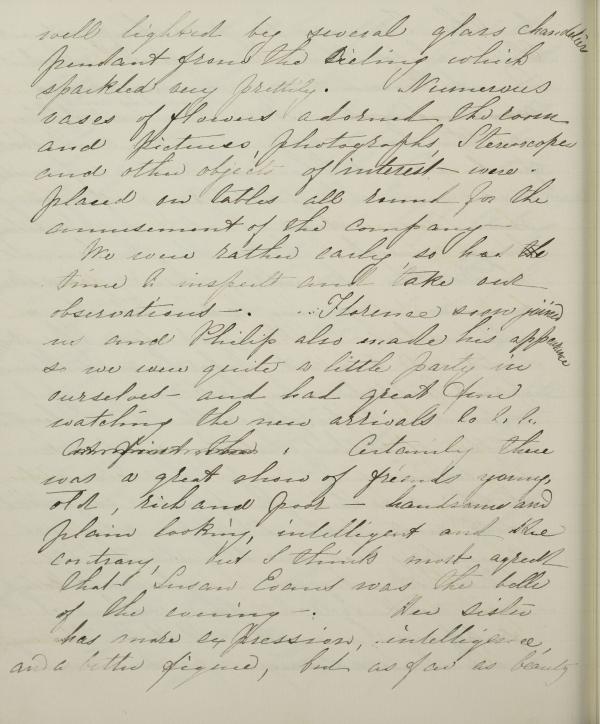 well lighted by several glass chandeliers
pendant from the Sieling which
sparkled very prettily. Numerous
vases of flowers adorned the room
and Pictures, photographs, Stereoscopes
and other objects of interest were
placed on tables all round for the
amusement of the company—
We were rather early so had the
time to inspect and take our
observations—. Florence soon joined
us and Philip also made his appearance
so we were quite a little party in
ourselves— and had great fun
watching the new arrivals
Certainly there
was a great show of friends young,
old, rich and poor— handsome and
plain looking, intelligent and the
contrary, but I think most agreed
that Susan Evans was the belle
of the evening—. Her sister
has more expression, intelligence,
and a better figure, but as far as beauty